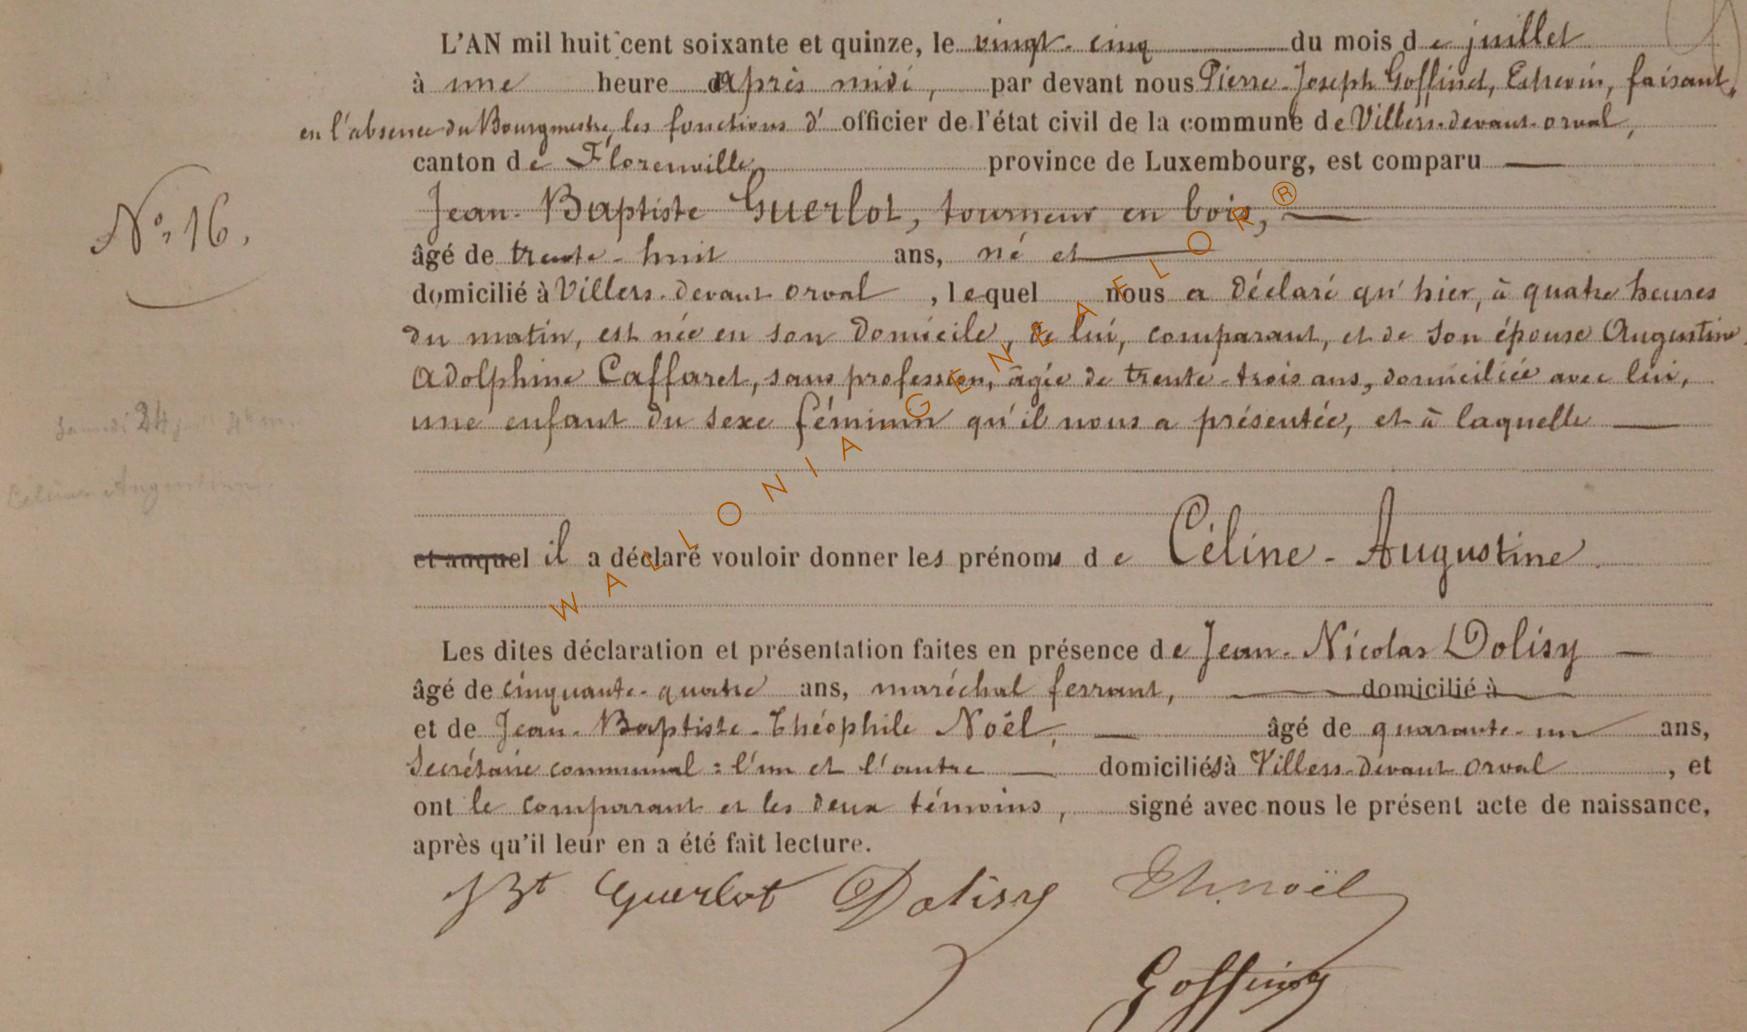 L'AN mil huit cent soixante et quinze, le vingt-cinq du mois de juillet
à une heure après midi, par devant nous Pierre-Joseph Goffinet, Echevin, faisant,
en l'absence du Bourgmestre, les fonctions d'officier de l'état civil de la commune de Villers-devant-orval,
canton de Florenville, province de Luxembourg, est comparu
N° 16.
Jean-Baptiste Guerlot, tourneur en bois,
âgé de trente-huit ans, né et
domicilié à Villers-devant orval, lequel nous a déclaré qu'hier, à quatre heures
du matin, est née en son domicile, de lui, comparant, et de son épouse Augustine
Adolphine Caffaret, sans profession, âgée de trente-trois ans, domiciliée avec lui,
une enfant du sexe féminin qu'il nous a présentée, et à laquelle
Samedi 24
Céline Augustine
et auquel il a déclaré vouloir donner les prénoms de Céline-Augustine.
Les dites déclaration et présentation faites en présence de Jean-Nicolas Dolisy
âgé de cinquante-quatre ans, maréchal ferrant, domicilié à
et de Jean-Baptiste-Théophile Noël, âgé de quarante-un ans,
Secrétaire communal : l'un et l'autre domiciliés à Villers-devant orval, et
ont le comparant et les deux témoins, signé avec nous le présent acte de naissance,
après qu'il leur en a été fait lecture.
JBt Guerlot Dolisy Th. noël
Goffinet
WALLONIA GENEAFLOR ®